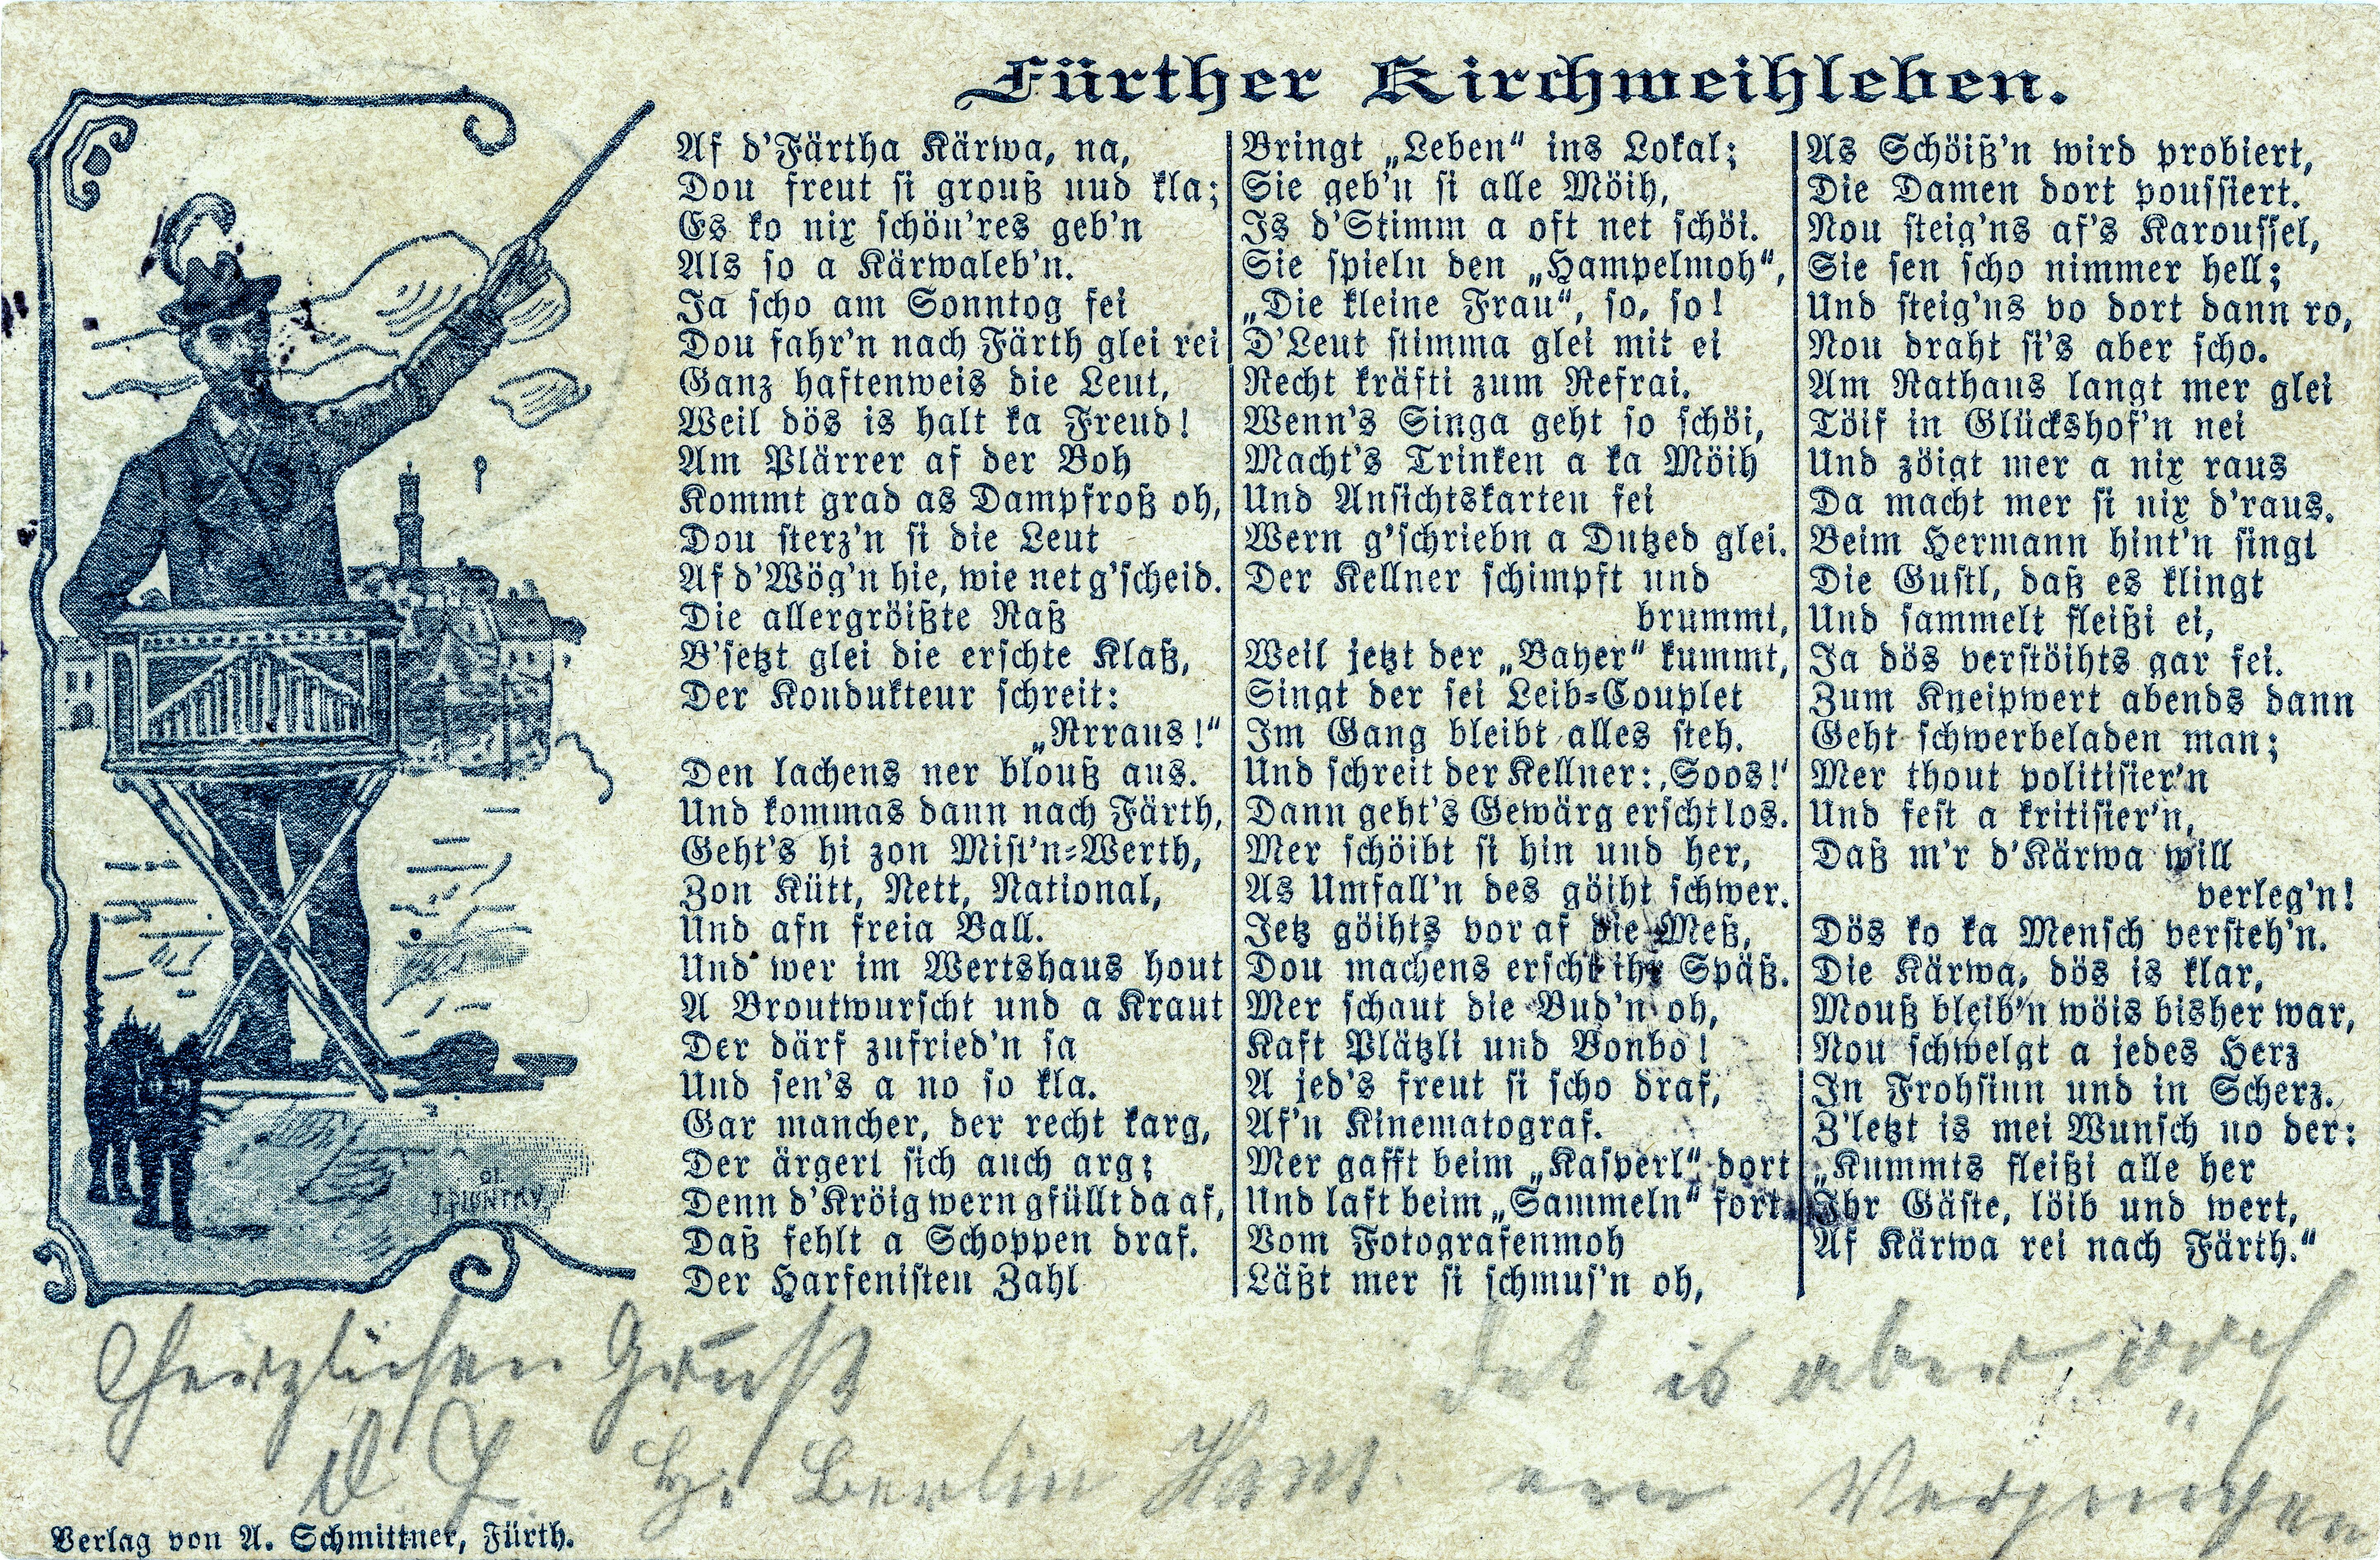 Fürther Kirchweihleben.
Af d'Färtha Kärwa, na,
Dou freut si grouß uud kla;
Es ko nix schön'res geb'n
Als so a Kärwaleb'n.
Ja scho am Sonntog fei
Dou fahr'n nach Färth glei rei
Ganz haftenweis die Leut,
Weil dös is halt ka Freud!
Am Plärrer af der Boh
Kommt grad as Dampfroß oh,
Dou sterz'n si die Leut
Af d'Wög'n hie, wie net g'scheid.
Die allergröißte Raß
B'setzt glei die erschte Klaß,
Der Kondukteur schreit:
„Rrraus!“
Den lachens ner blouß aus.
Und kommas dann nach Färth,
Geht's hi zon Mist'n-Werth,
Zon Kütt, Nett, National,
Und afn freia Ball.
Und wer im Wertshaus hout
A Broutwurscht und a Kraut
Der därf zufried'n sa
Und sen's a no so kla.
Gar mancher, der recht karg,
Der ärgert sich auch arg;
Denn d'Kröig wern gfüllt da af,
Daß fehlt a Schoppen draf.
Der Harfenisten Zahl
Bringt „Leben“ ins Lokal;
Sie geb'n si alle Möih,
Is d'Stimm a oft net schöi.
Sie spieln den „Hampelmoh“,
„Die kleine Frau“, so, so!
D'Leut stimma glei mit ei
Recht kräfti zum Refrai.
Wenn's Singa geht so schöi,
Macht's Trinken a ka Möih
Und Ansichtskarten fei
Wern g'schriebn a Dutzed glei.
Der Kellner schimpft und
brummt,
Weil jetzt der „Bayer“ kummt,
Singt der sei Leib-Couplet
Im Gang bleibt alles steh.
Und schreit der Kellner: ‚Soos!‘
Dann geht's Gewärg erscht los.
Mer schöibt si hin und her,
As Umfall'n des göiht schwer.
Jetz göihts vor af die Meß,
Dou machens erscht ihr Späß.
Mer schaut die Bud'n oh,
Kaft Plätzli und Bonbo!
A jed's freut si scho draf,
Af'n Kinematograf.
Mer gafft beim „Kasperl“ dort
Und laft beim „Sammeln“ fort.
Vom Fotografenmoh
Läßt mer si schmus'n oh,
As Schöiß'n wird probiert,
Die Damen dort poussiert.
Nou steig'ns af's Karoussel,
Sie sen scho nimmer hell;
Und steig'ns vo dort dann ro,
Nou draht si's aber scho.
Am Rathaus langt mer glei
Töif in Glückshof'n nei
Und zöigt mer a nix raus
Da macht mer si nix d'raus.
Beim Hermann hint'n singt
Die Gustl, daß es klingt
Und sammelt fleißi ei,
Ja dös verstöihts gar fei.
Zum Kneipwert abends dann
Geht schwerbeladen man;
Mer thout politisier'n
Und fest a kritisier'n,
Daß m'r d'Kärwa will
verleg'n!
Dös ko ka Mensch versteh'n.
Die Kärwa, dös is klar,
Mouß bleib'n wöis bisher war,
Nou schwelgt a jedes Herz
In Frohsinn und in Scherz.
Z'letzt is mei Wunsch no der:
„Kummts fleißi alle her
Ihr Gäste, löib und wert,
Af Kärwa rei nach Färth.“
Herzlichen Gruß
Berlin
Det is aber
ein Vergnügen
Verlag von A. Schmittner, Fürth.